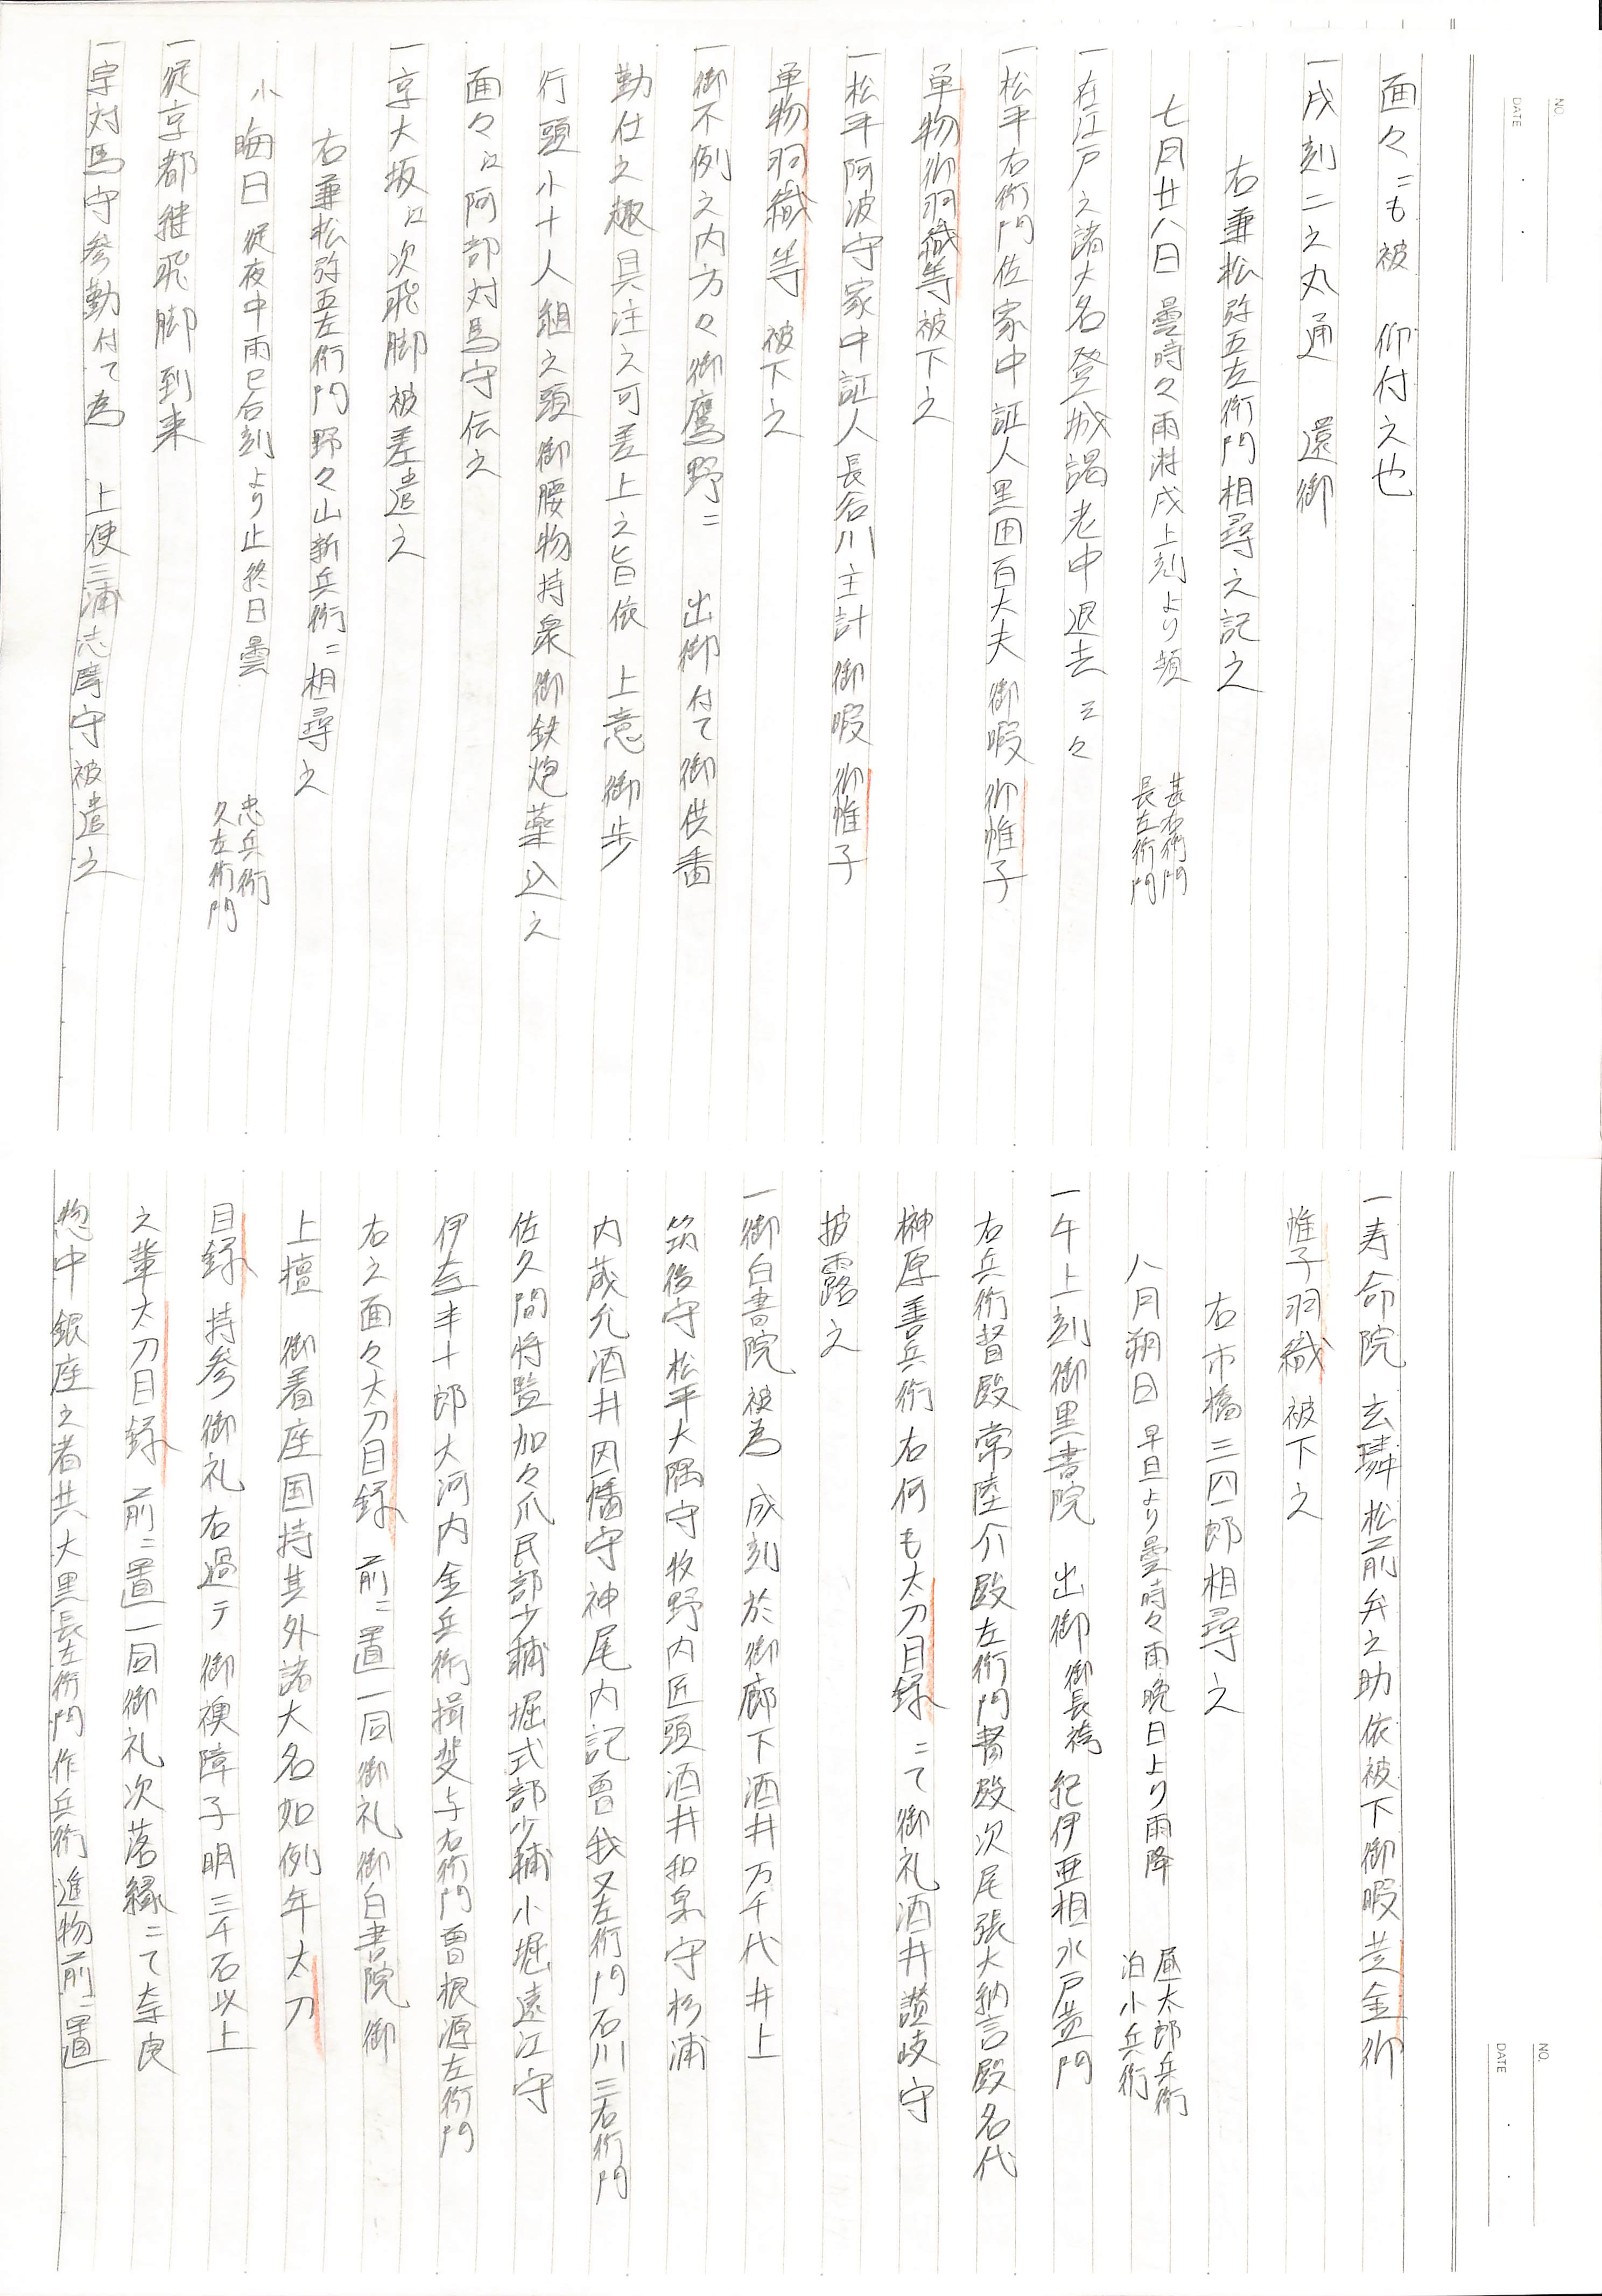 NO.
DATE
面々ニも被　仰付之也
一戌刻二之丸通　還御
右兼松弥五左衛門相尋之記之
七月廿八日　曇時々雨淋戌上刻より頻　甚右衛門
長左衛門
一在江戸之諸大名登城謁老中退去云々
一松平右衛門佐家中証人黒田百大夫　御暇　御帷子
単物御羽織等被下之
一松平阿波守家中証人長谷川主計　御暇　御帷子
単物羽織等　被下之
一御不例之内方々御鷹野ニ　出御付て御供番
勤仕之趣具注之可差上之旨依　上意　御歩
行頭小十人組之頭御腰物持衆御鉄炮薬込之
面々江阿部対馬守伝之
一京大坂江次飛脚被差遣之
右兼松弥五左衛門野々山新兵衛ニ相尋之
小晦日　従夜中雨巳后刻より止終日曇　忠兵衛
久左衛門
一従京都継飛脚到来
一宗対馬守参勤付て為　上使三浦志摩守被遣之
NO.
DATE
一寿命院　玄璘松前弁之助依被下御暇　芝金御
帷子羽織　被下之
右市橋三四郎相尋之
八月朔日　早旦より曇時々雨晩日より雨降　昼太郎兵衛
泊小兵衛
一午上刻御黒書院　出御　御長袴　紀伊亜相水戸黄門
右兵衛督殿常陸介殿左衛門督殿次尾張大納言殿名代
榊原善兵衛右何も太刀目録ニて御礼酒井讃岐守
披露之
一御白書院被為　成刻於御廊下酒井万千代井上
筑後守松平大隅守牧野内匠頭酒井和泉守杉浦
内蔵允酒井因幡守神尾内記曽我又左衛門石川三右衛門
佐久間将監加々爪民部少輔堀式部少輔小堀遠江守
伊奈半十郎大河内金兵衛揖斐与右衛門曽根源左衛門
右之面々太刀目録　前ニ置一同御礼御白書院御
上檀　御着座国持其外諸大名如例年太刀
目録　持参御礼右過テ御襖障子明三千石以上
之輩太刀目録　前ニ置一同御礼次落縁ニて奈良
惣中銀座之者共大黒長左衛門作兵衛進物前ニ置